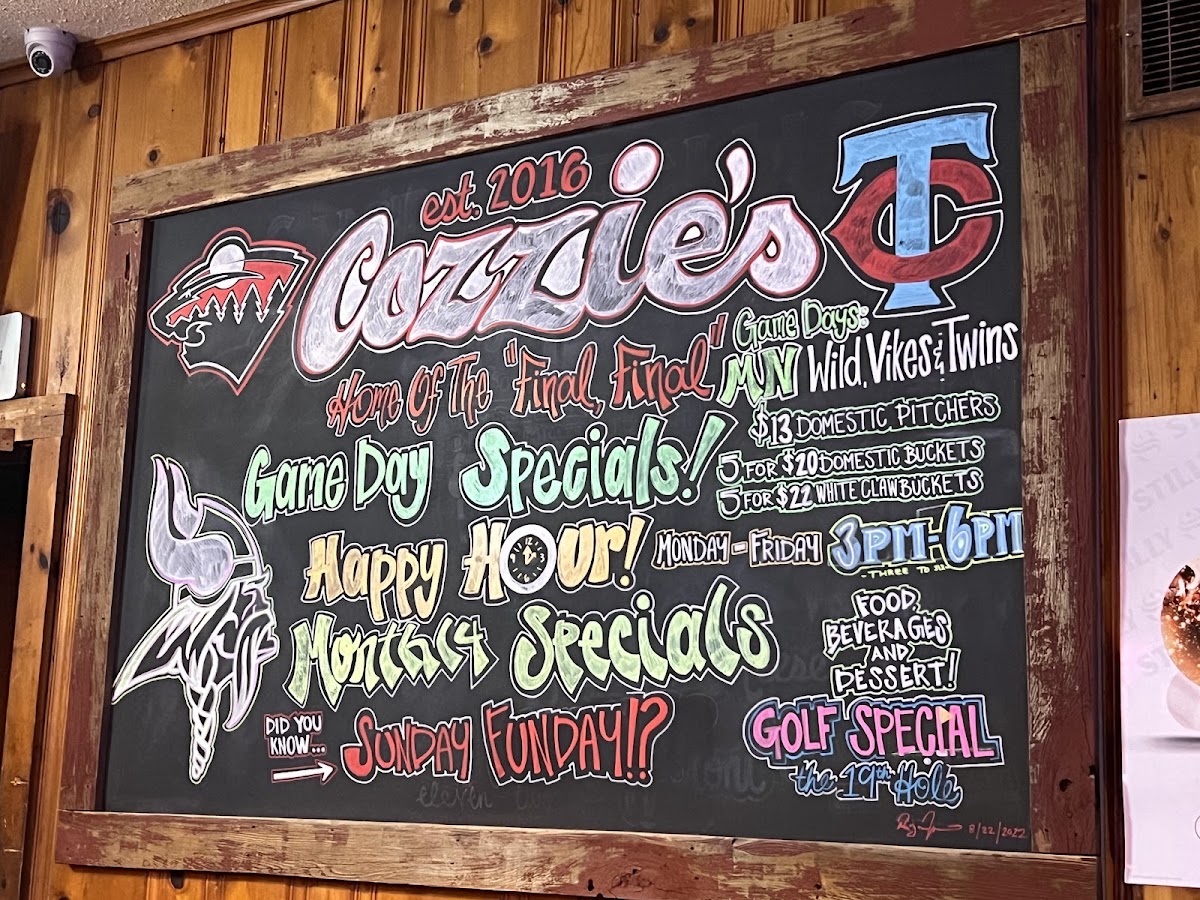 est. 2016
Cozzie's
TC
Home Of The "Final, Final"
Game Days:
MN Wild, Vikes & Twins
Game Day Specials!
$13 DOMESTIC PITCHERS
5 FOR $20 DOMESTIC BUCKETS
5 FOR $22 WHITE CLAW BUCKETS
Happy Hour!
MONDAY - FRIDAY
3PM-6PM
- THREE TO SIX -
Monthly Specials
FOOD,
BEVERAGES
AND
DESSERT!
DID YOU
KNOW...
SUNDAY FUNDAY!?
GOLF SPECIAL
the 19th Hole
8/22/2022